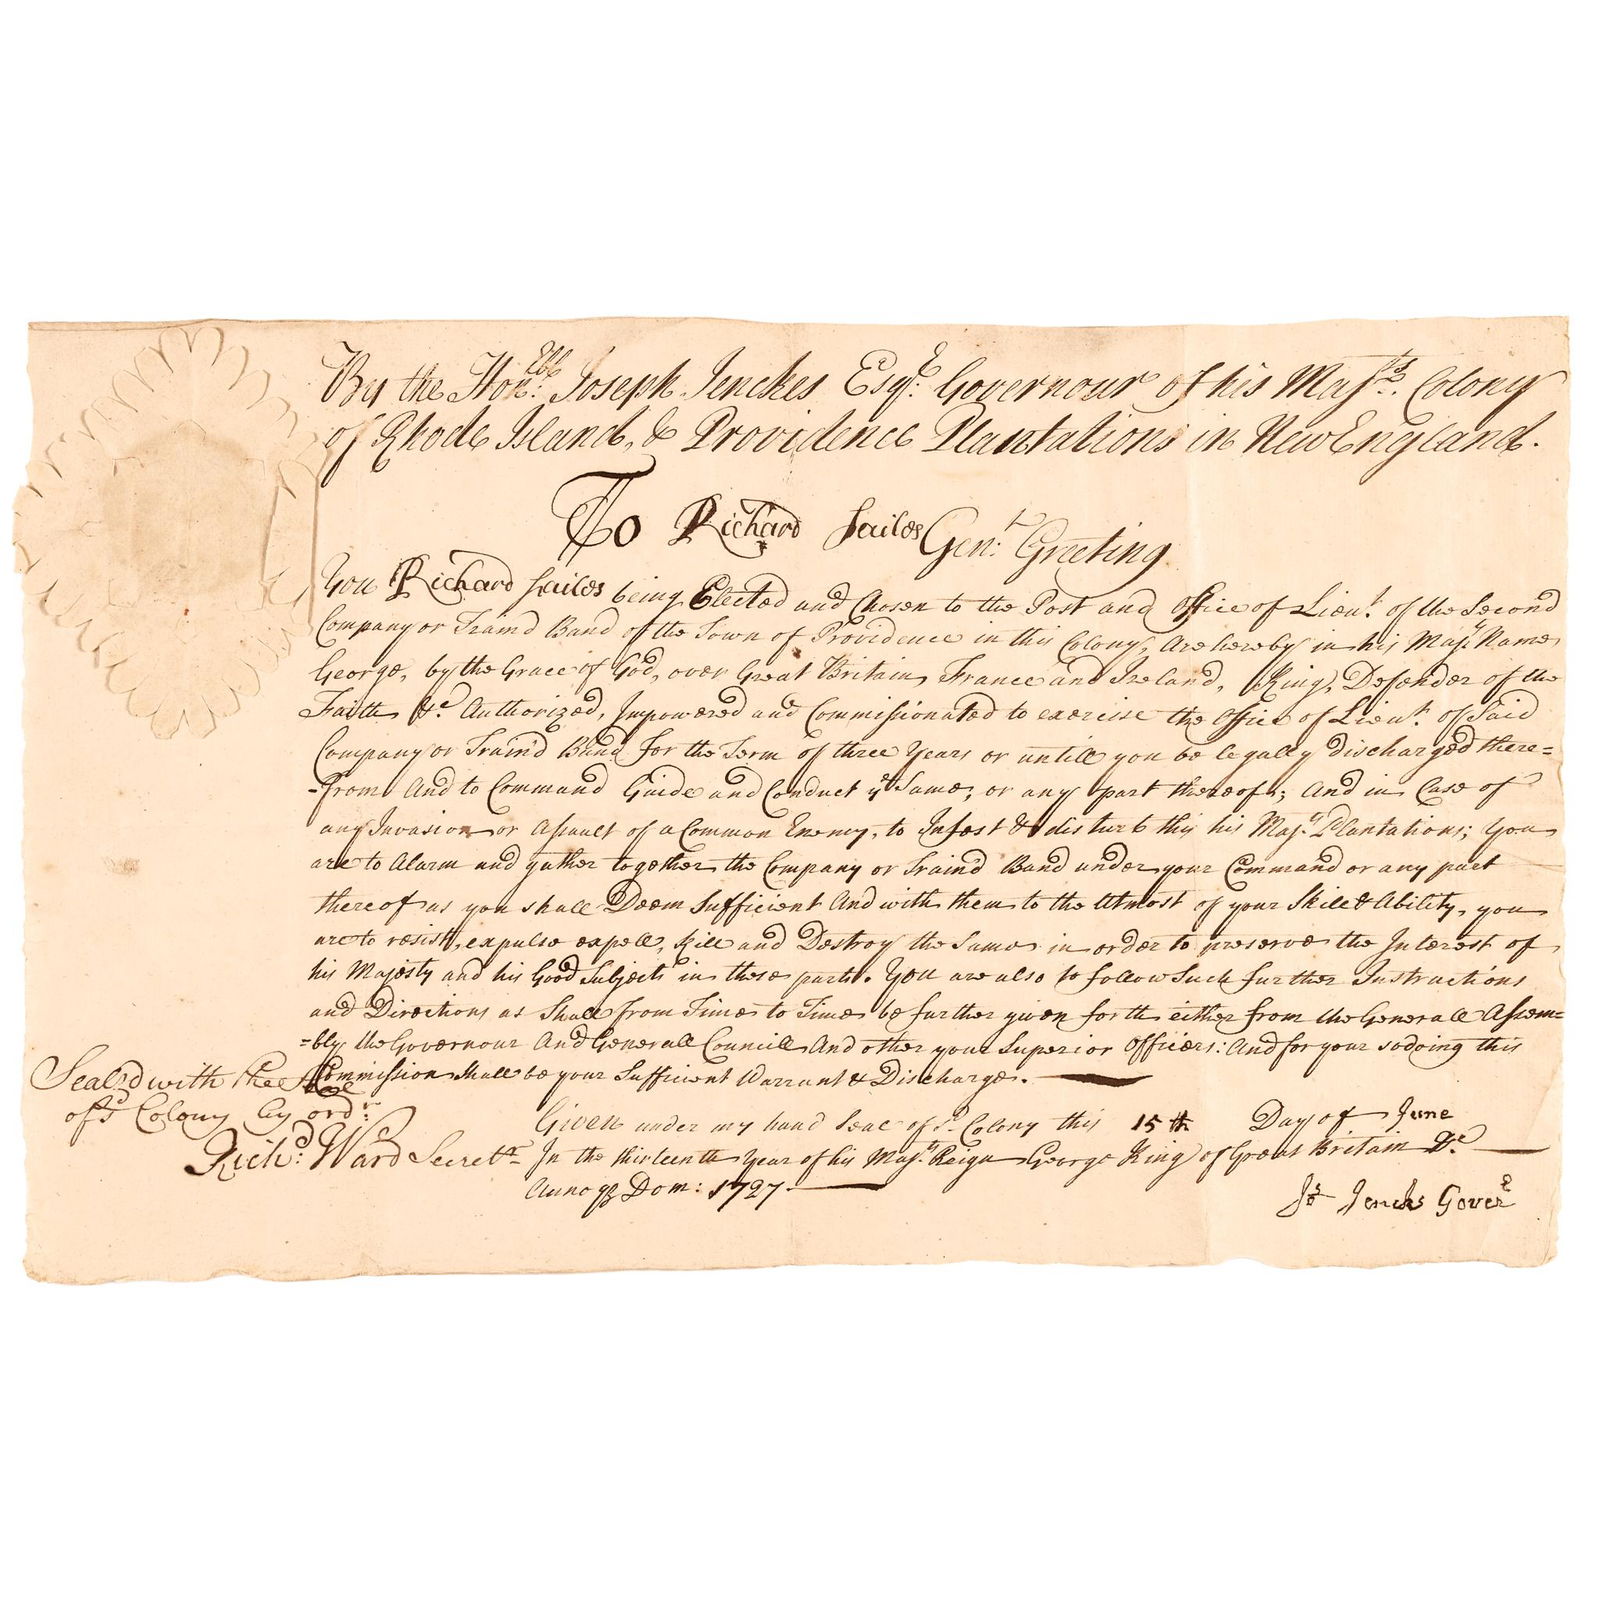 By the Honble. Joseph Jenckes Esqr. Governour of his Majts. Colony
of Rhode Island, & Providence Plantations in New England.
To Richard Sailes Gent. Greeting
You Richard Sailes being Elected and Chosen to the Post and Office of Lieut. of the Second
Company or Traind Band of the Town of Providence in this Colony, Are hereby in his Majtys Name
George, by the Grace of God, over Great Britain, France and Ireland, King, Defender of the
Faith &c Authorized, Impowered and Commissionated to exercise the Office of Lieut. of Said
Company or Train'd Band for the Term of three Years or untill you be legally discharged there=
=from And to Command Guide and Conduct ye Same; or any part thereof; And in Case of
any Invasion or Assault of a Common Enemy, to Infest & disturb this his Majtys Plantations; You
are to Alarm and gather together the Company or Train'd Band under your Command or any part
thereof as you shall Deem Sufficient And with them to the Utmost of your Skill & Ability, you
are to resist, expulse expell, kill and Destroy the Same in order to preserve the Interest of
his Majesty and his Good Subjects in these parts. You are also to follow Such further Instructions
and Directions as Shall from Time to Time be further given forth either from the Generall Assem=
=bly the Governour And Generall Councill And other your Superior Officers: And for your so doing this
Commission Shall be your Sufficient Warrant & Discharge.
Sealed with the Seale
of sd Colony by ordr:
Richd: Ward Secretr
Given under my hand Seal of sd. Colony this 15th Day of June
In the thirteenth Year of his Majtys Reign George King of Great Britain &c
Annoq Dom: 1727.
Jos Jencks Goverr